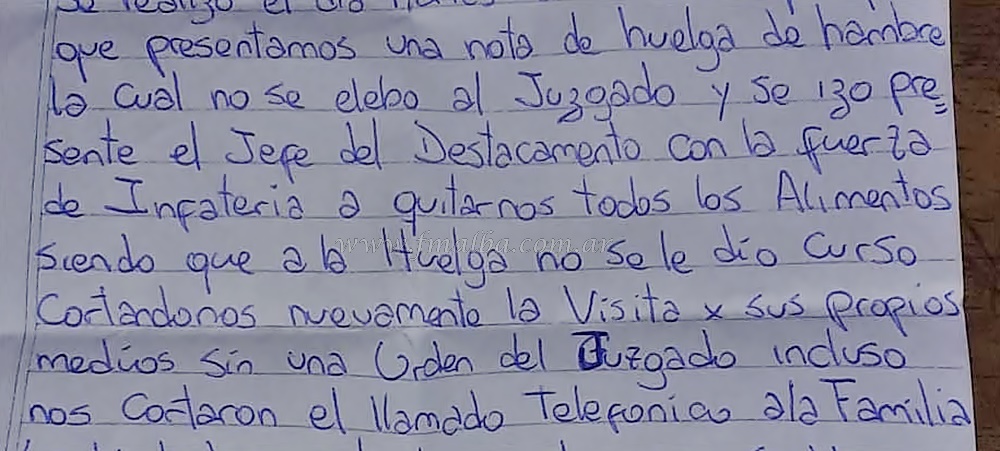 se realizo el dia
que presentamos una nota de huelga de hambre
la cual no se elebo al Juzgado y se izo pre=
sente el Jefe del Destacamento con la fuerza
de Infateria a quitarnos todos los Alimentos
www.fmalba.com.ar
siendo que a la Huelga no se le dio curso
Cortandonos nuevamente la Visita x sus propios
medios sin una Orden del Juzgado incluso
nos Cortaron el llamado Telefonico a la Familia